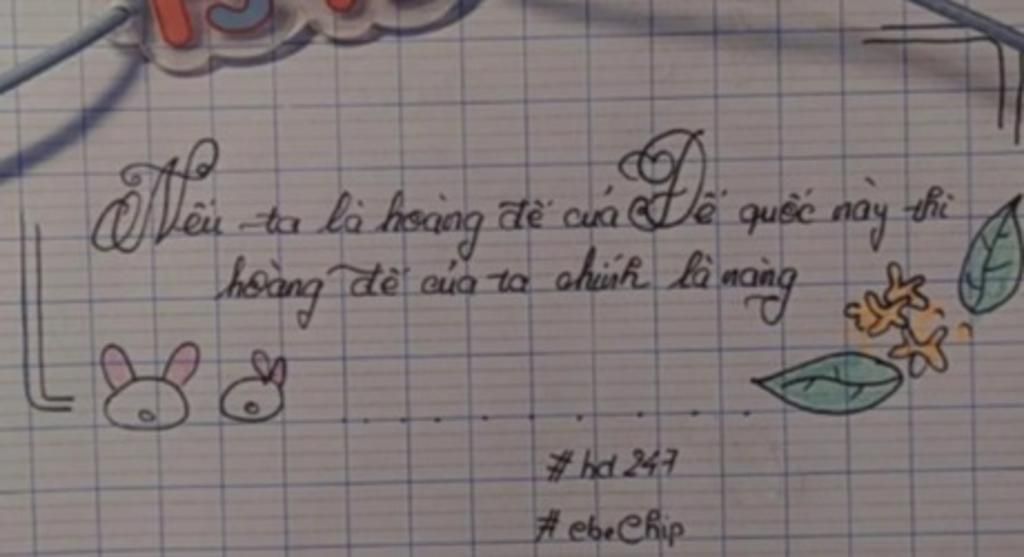 Nếu ta là hoàng đế của Đế quốc này thì
hoàng đế của ta chính là nàng
#hd247
#ebeChip